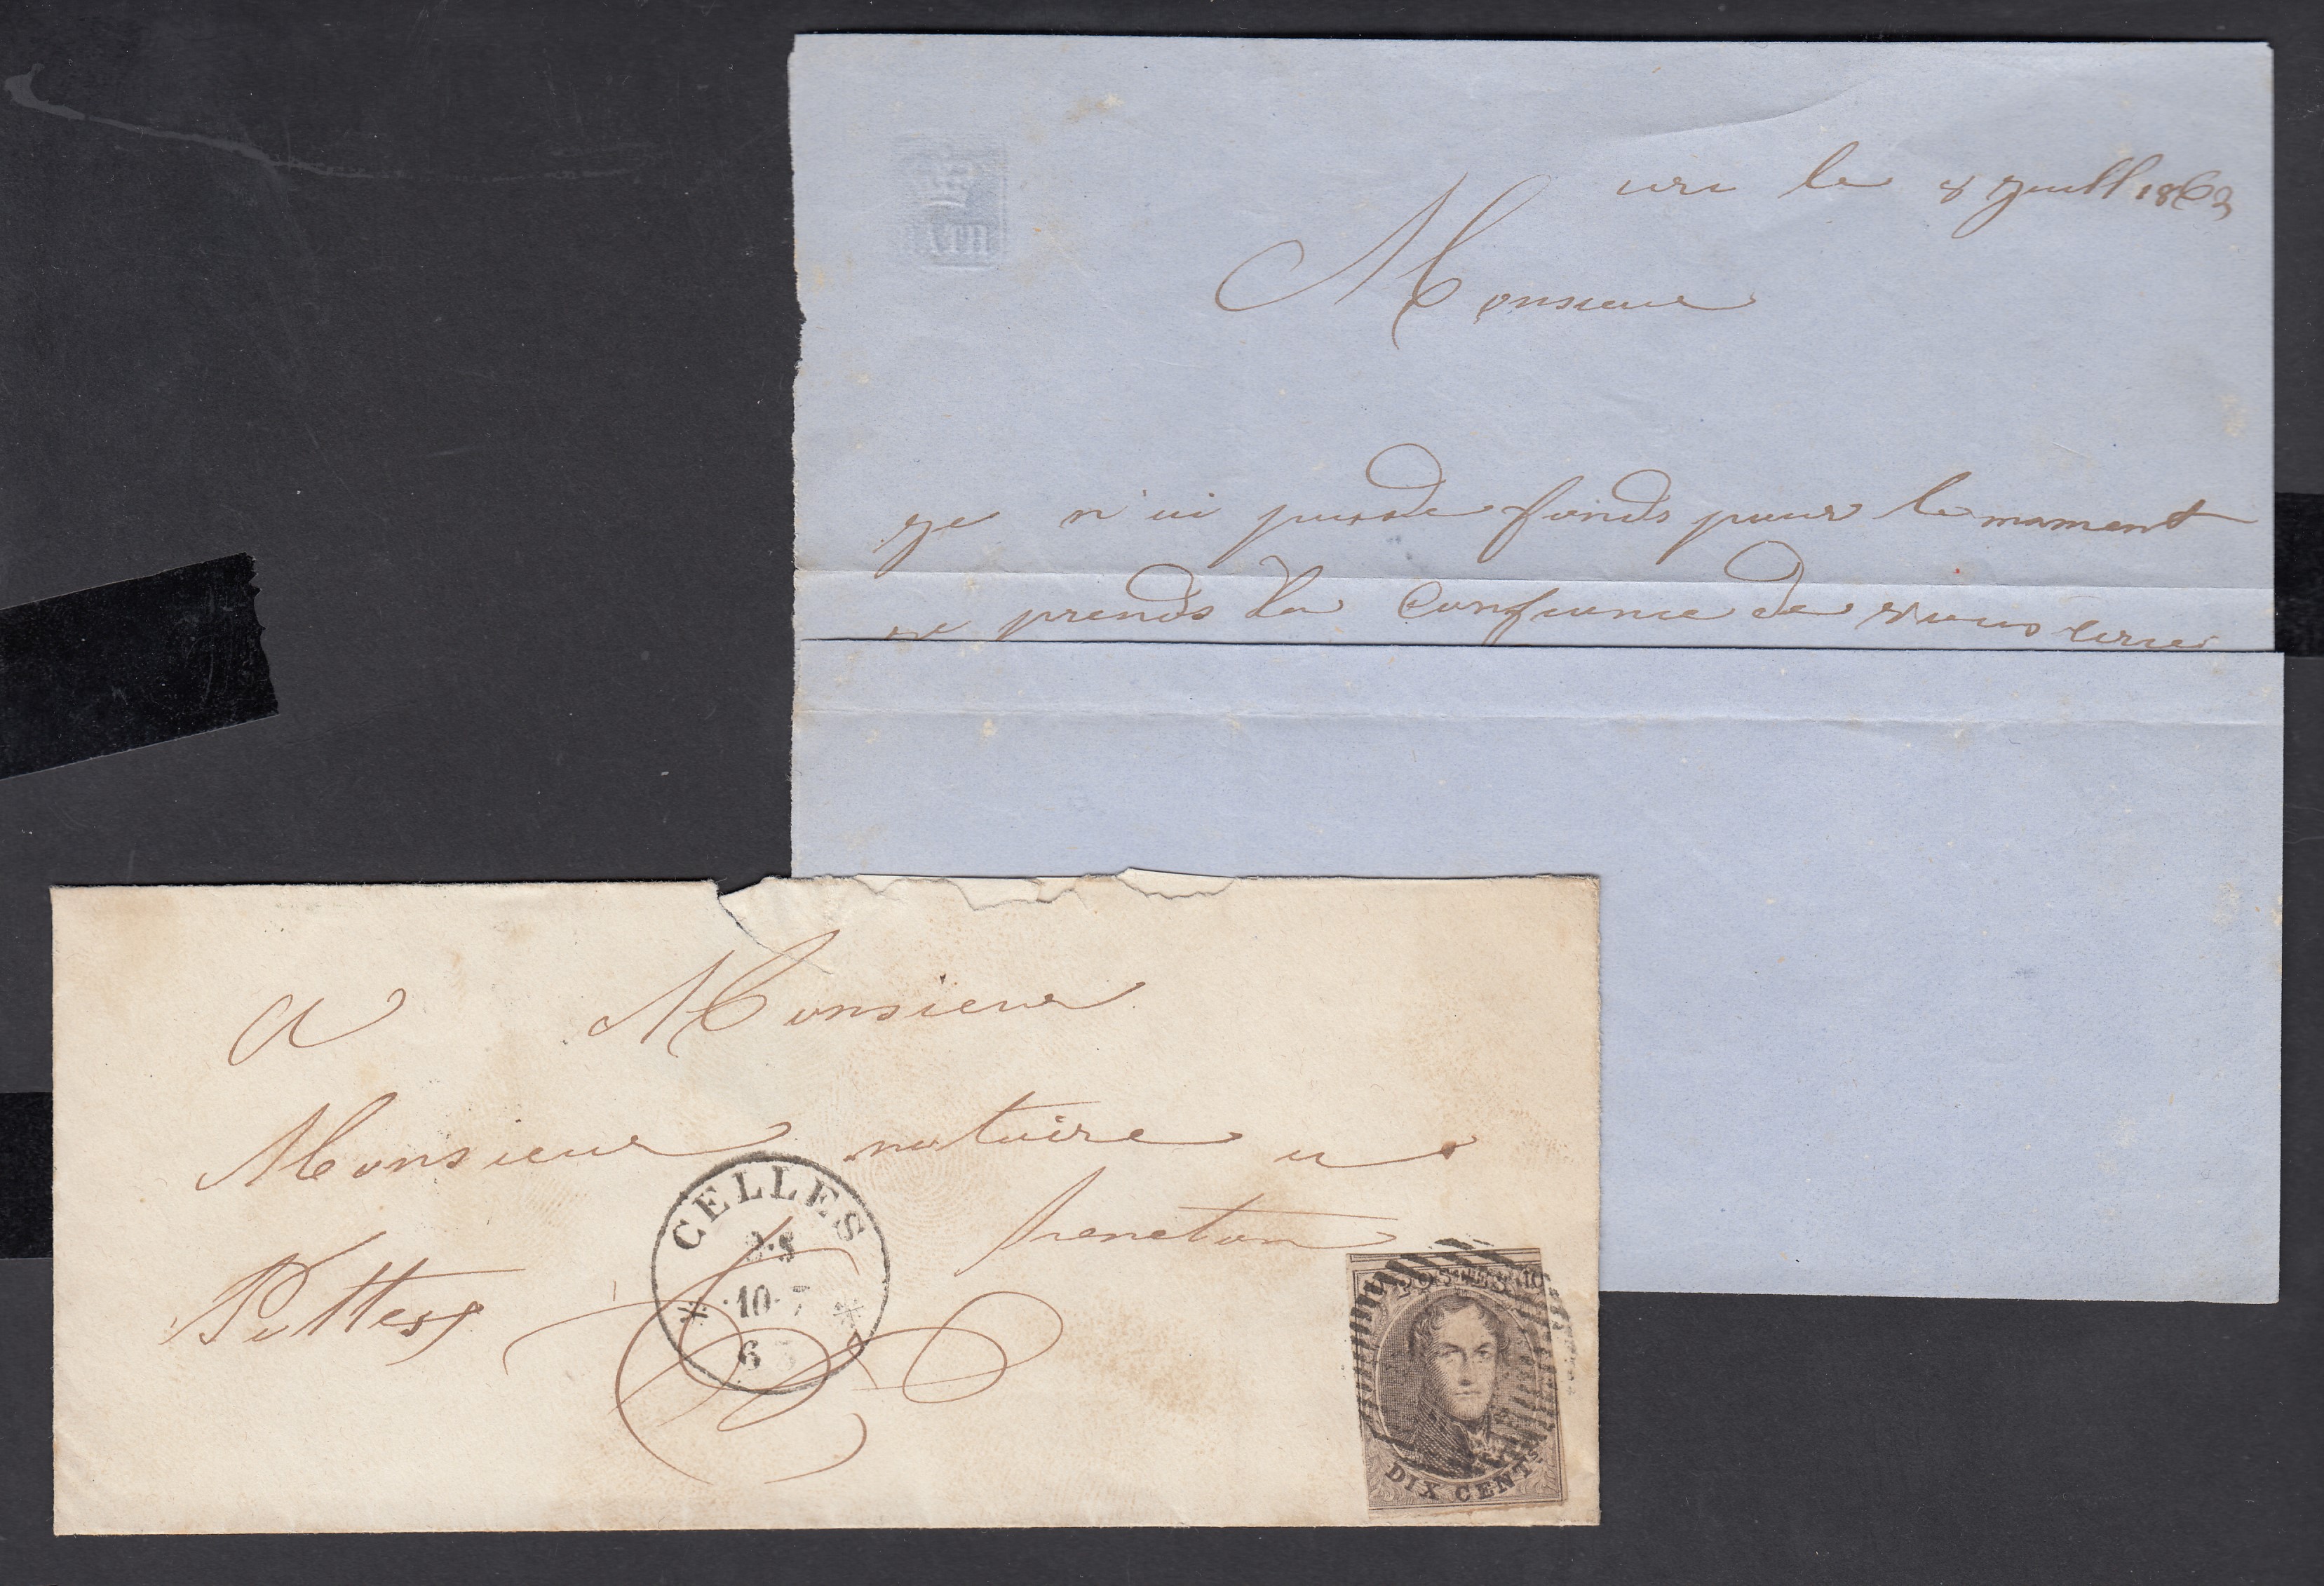 ATH
le 8 juill 1863
Monsieur
je n'ai pas de fonds pour le moment
je prends la Confiance de vous écrire
A Monsieur
Monsieur notaire a
Pottes
CELLES
10·7
63
POSTES 10
DIX CENTS